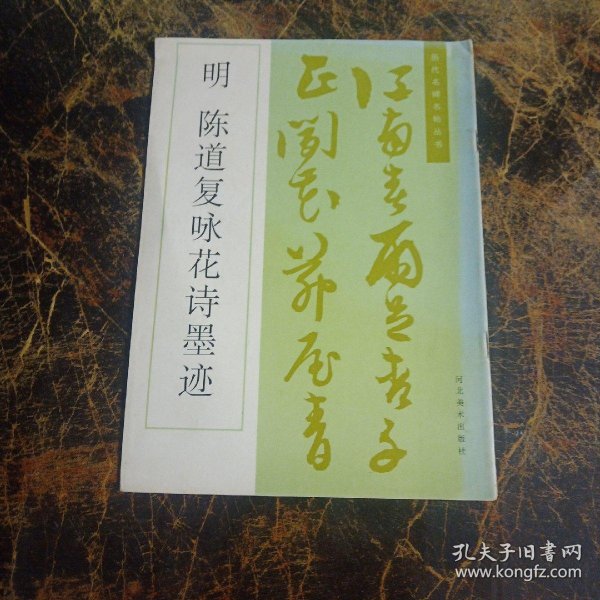 明 陈道复咏花诗墨迹
历代名碑名帖丛书
江南春雨足杏子
正開花茆屋青
河北美术出版社
孔夫子旧书网
www.kongfz.com